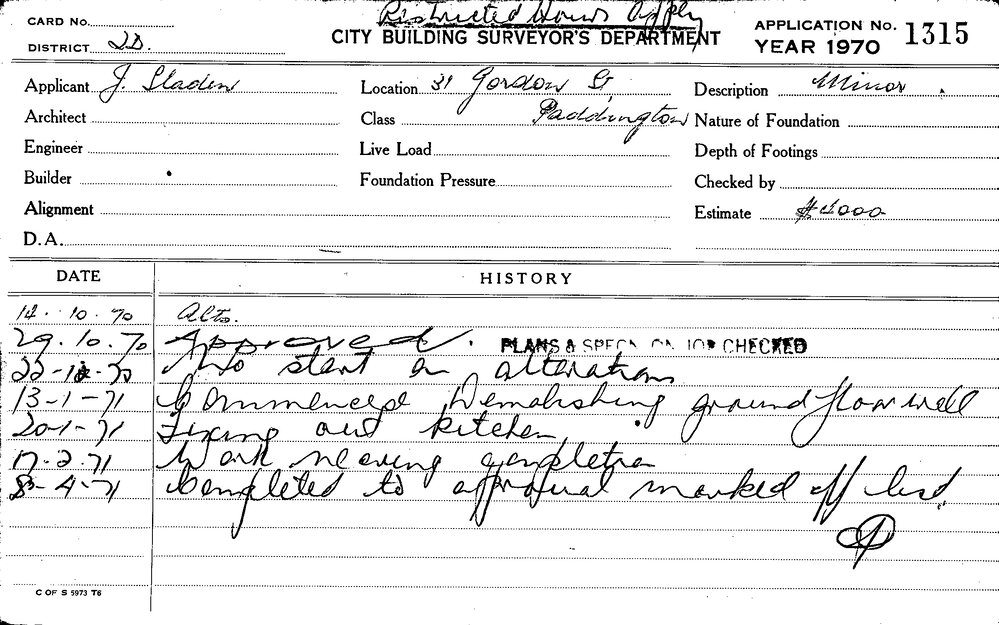 Restricted Hours Apply
CARD No.
CITY BUILDING SURVEYOR'S DEPARTMENT
APPLICATION No. 1315
DISTRICT 2D.
YEAR 1970
Applicant J. Sladen
Location 31 Gordon St,
Description Minor
Architect
Class Paddington
Nature of Foundation
Engineer
Live Load
Depth of Footings
Builder
Foundation Pressure
Checked by
Alignment
Estimate $4000
D.A.
DATE HISTORY
14.10.70 Alts.
29.10.70 Approved. PLANS & SPECN. ON JOB CHECKED
22-12-70 No start on alterations
13-1-71 Commenced Demolishing ground floor wall
20-1-71 Fixing out kitchen
17.2.71 Work nearing completion
8-4-71 Completed to approval marked off list.
C OF S 5973 T6